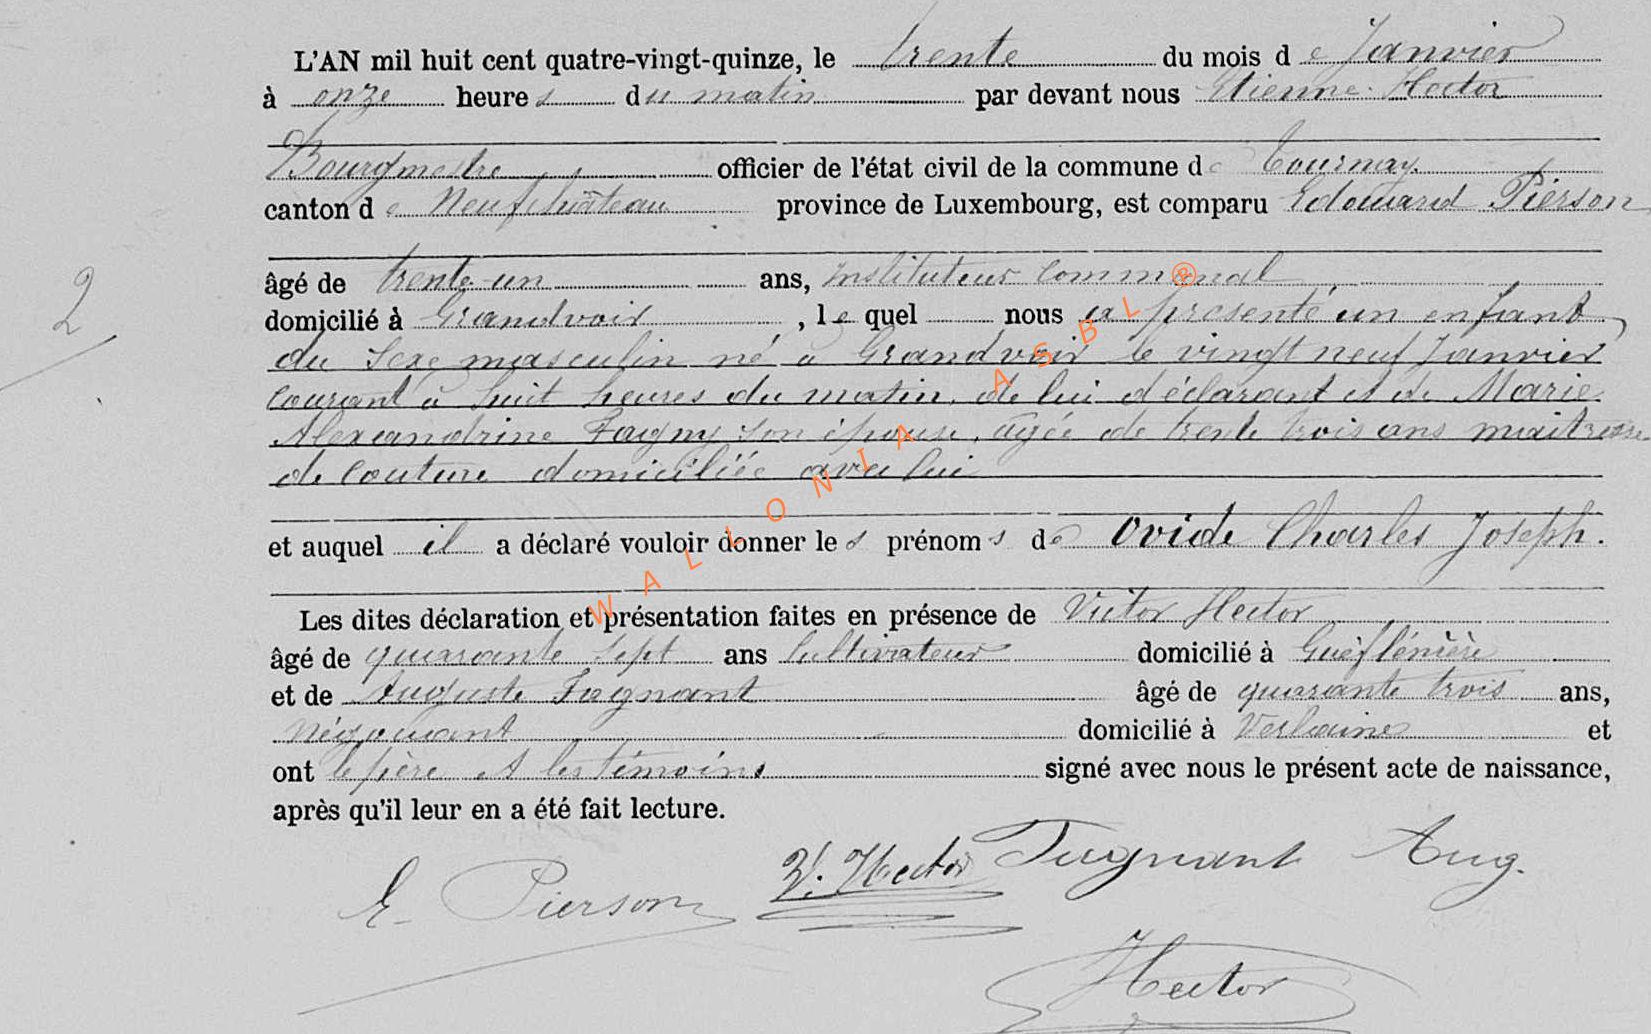 L'AN mil huit cent quatre-vingt-quinze, le trente du mois de Janvier
à onze heures du matin par devant nous Etienne Hector
Bourgmestre officier de l'état civil de la commune de Tournay.
canton de Neufchâteau province de Luxembourg, est comparu Edouard Pierson
âgé de trente-un ans, instituteur communal
domicilié à Grandvoir, lequel nous a présenté un enfant
2
du sexe masculin né à Grandvoir le vingt neuf Janvier
courant à huit heures du matin, de lui déclarant et de Marie
Alexandrine Fagny son épouse, agée de trente trois ans maitresse
de couture domiciliée avec lui
et auquel il a déclaré vouloir donner les prénoms de Ovide Charles Joseph.
Les dites déclaration et présentation faites en présence de Victor Hector
âgé de quarante sept ans Cultivateur domicilié à
et de Auguste Fagnant âgé de quarante trois ans,
négociant domicilié à Verlaine et
ont le père et les témoins signé avec nous le présent acte de naissance,
après qu'il leur en a été fait lecture.
E. Pierson V. Hector Fagnant Aug.
Hector
WALLONIA ASBL ®